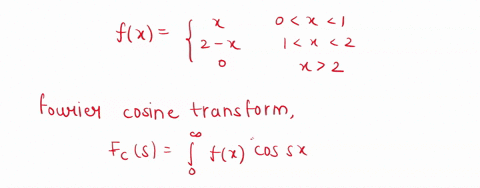 f(x) = { x 0 < x < 1
2-x 1 < x < 2
0 x > 2
fourier cosine transform,
Fc(s) = ∫₀^∞ f(x) cos sx